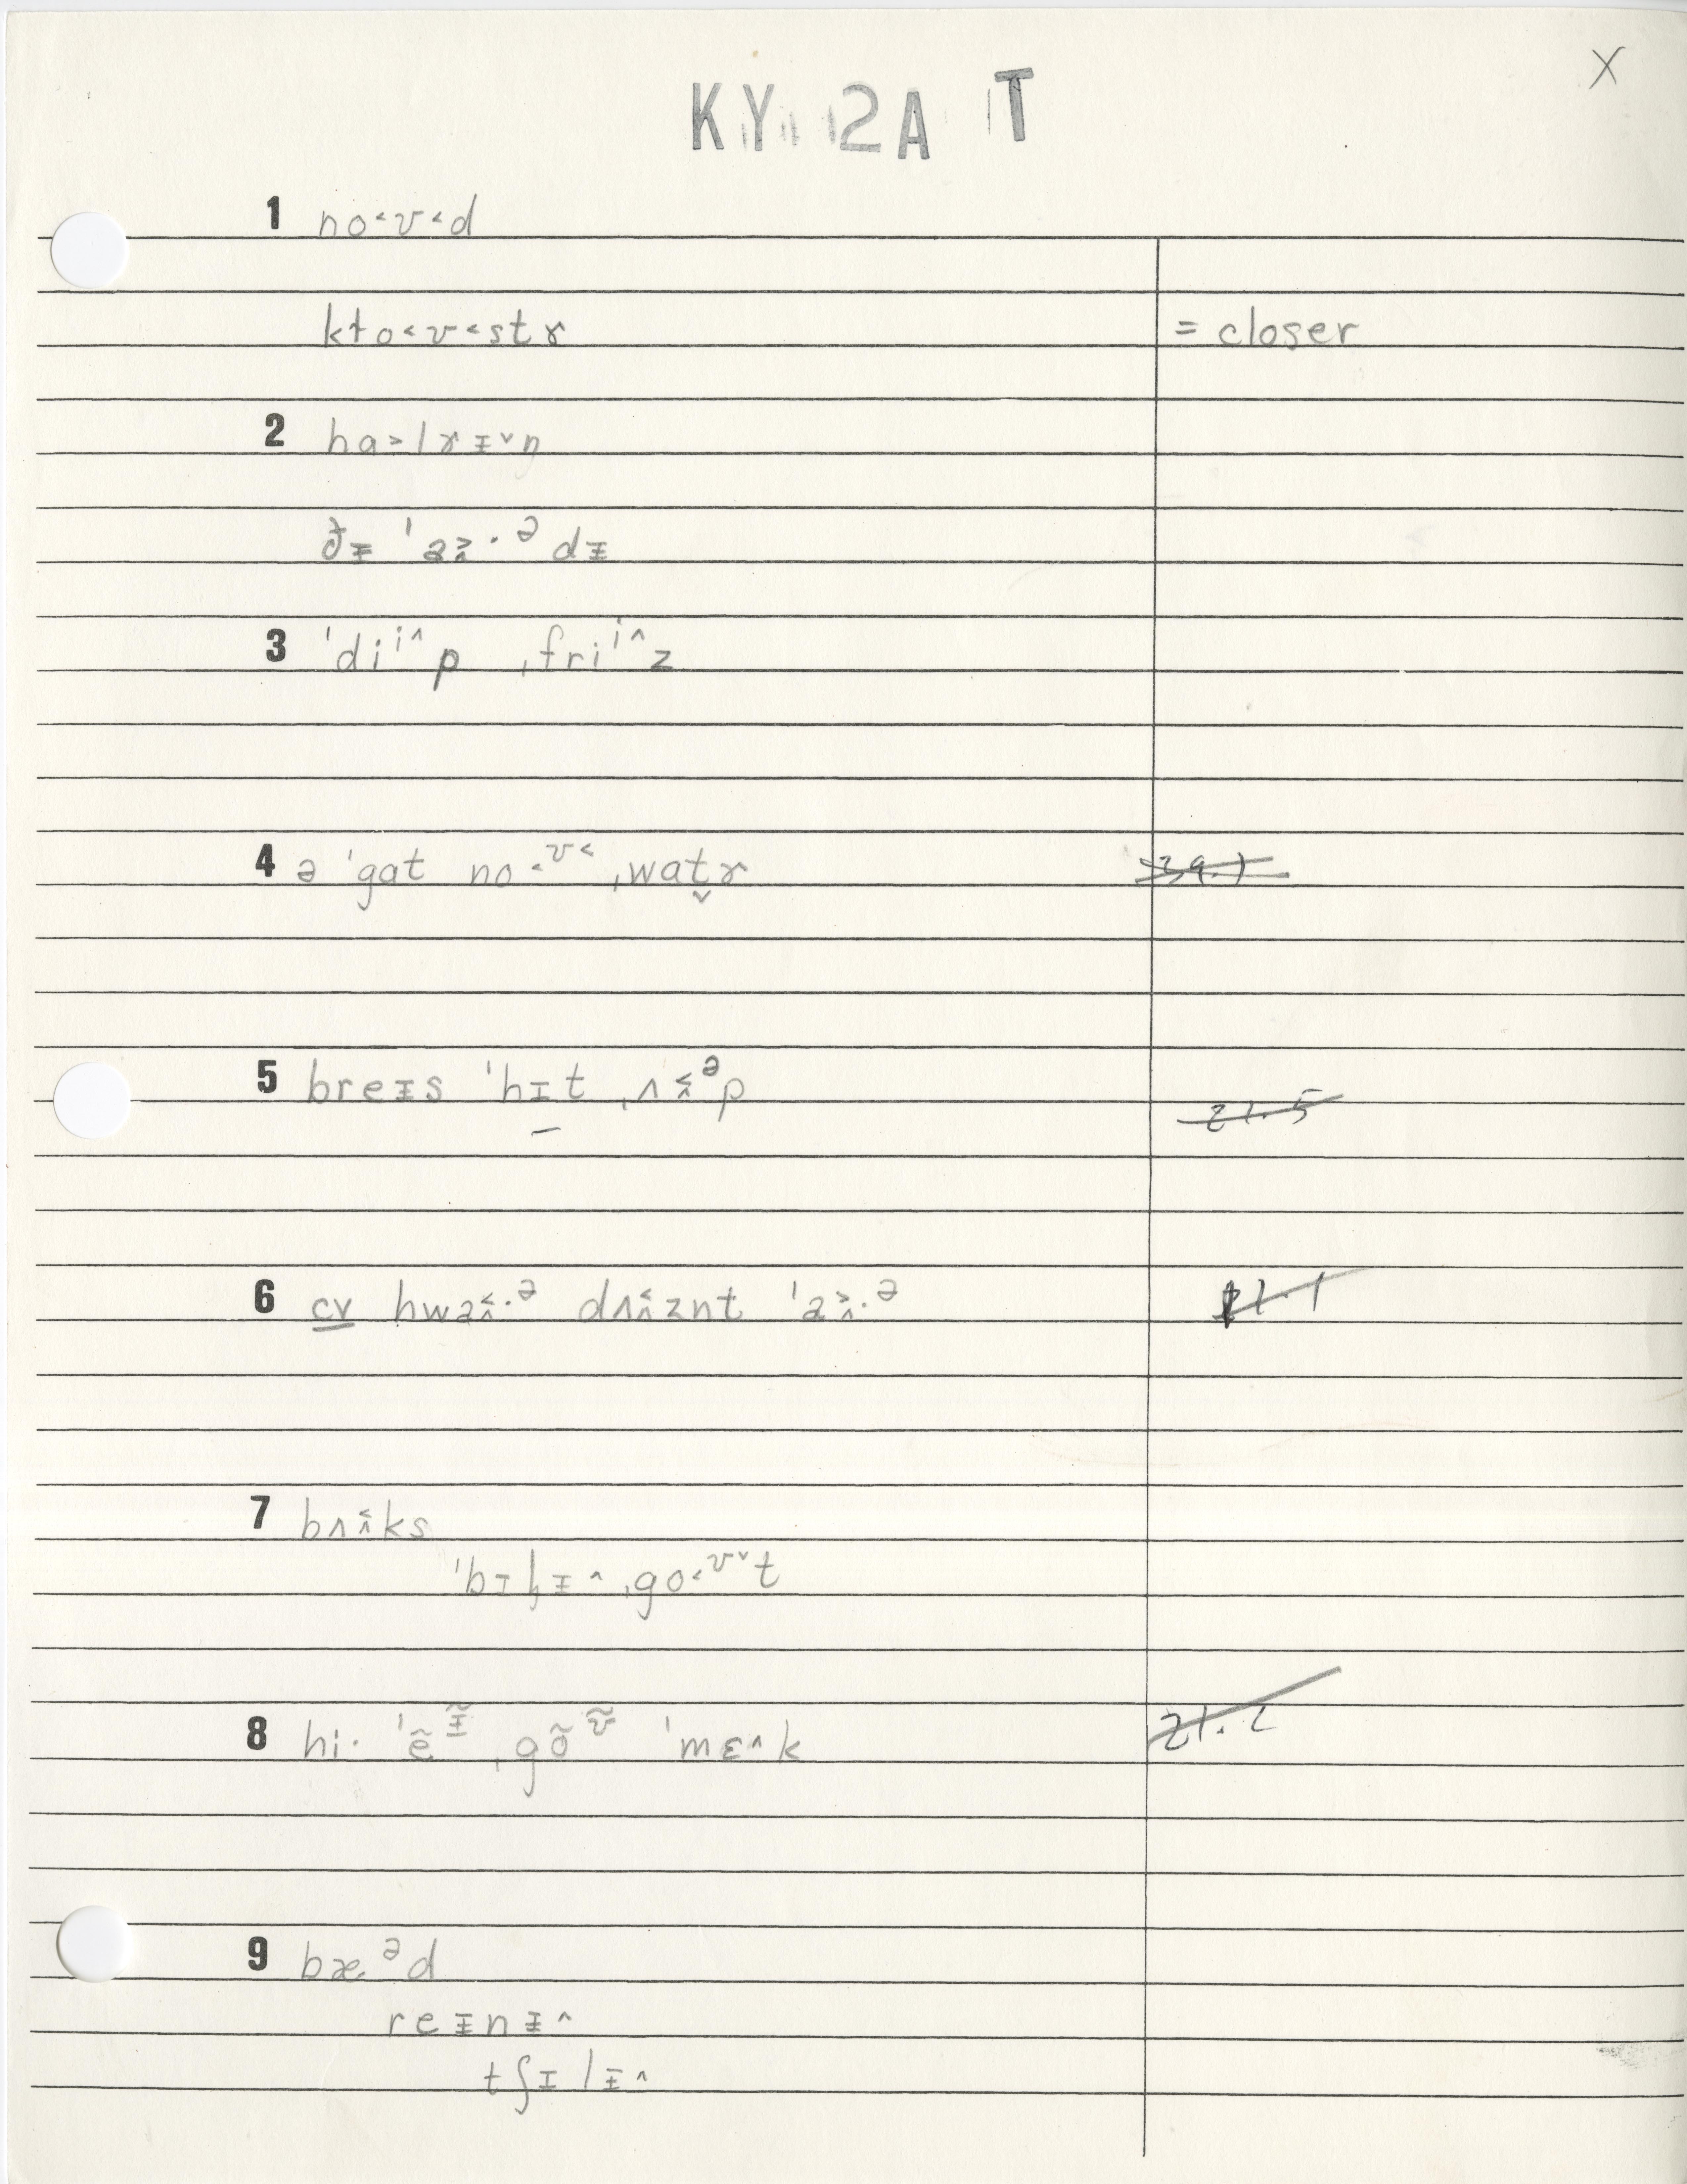 X
KY 2A T
1 no˂ʊ˂d
kɫo˂ʊ˂stɤ = closer
2 ha˃lɤᵻ˅ŋ
ðᵻ ˈa˃˄·ᵊdᵻ
3 ˈdiⁱ˄p ˌfriⁱ˄z
4 ə ˈgat no˂ᶷ˂ ˌwat̬ɤ 39.1
5 breᵻs ˈhɪ̠t ˌʌ˂˄ᵊp 21.5
6 cv hwa˂˄·ᵊ dʌ˂˄znt ˈa˃˄·ᵊ 21.1
7 bʌ˂˄ks
ˈbɪlᵻ˄ ˌgo˂ᶷ˅t
8 hi· ˈẽᵻ̃ ˌgõʊ̃ ˈmɛ˄k 21.2
9 bæᵊd
reᵻnᵻ˄
tʃɪlᵻ˄